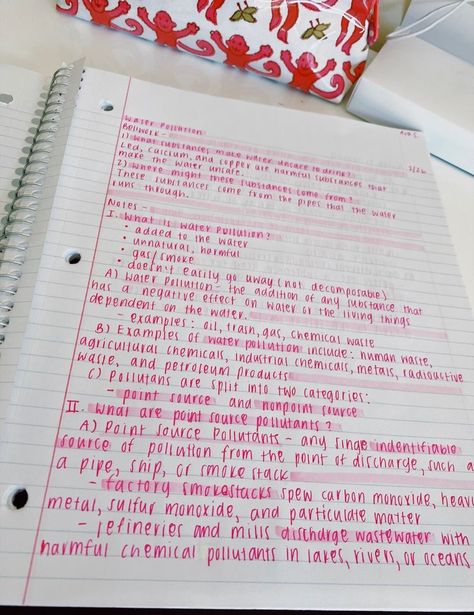 Water Pollution
Bellwork -
1) What substances make water unsafe to drink?
Led, calcium, and copper are harmful substances that
make the water unsafe.
3/26
2) Where might these substances come from?
These substances come from the pipes that the water
runs through.
Notes -
I. What is water pollution?
• added to the water
• unnatural, harmful
• gas/smoke
• doesn't easily go away (not decomposable)
A) Water Pollution - the addition of any substance that
has a negative effect on water or the living things
dependent on the water.
- examples: oil, trash, gas, chemical waste
B) Examples of water pollution include: human waste,
agricultural chemicals, industrial chemicals, metals, radioactive
waste, and petroleum products
C) Pollutans are split into two categories:
- point source and nonpoint source
II. What are point source pollutants?
A) Point Source Pollutants - any singe indentifiable
source of pollution from the point of discharge, such a
a pipe, ship, or smoke stack
- factory smokestacks spew carbon monoxide, heav
metal, sulfur monoxide, and particulate matter
- refineries and mills discharge wastewater with
harmful chemical pollutants in lakes, rivers, or oceans